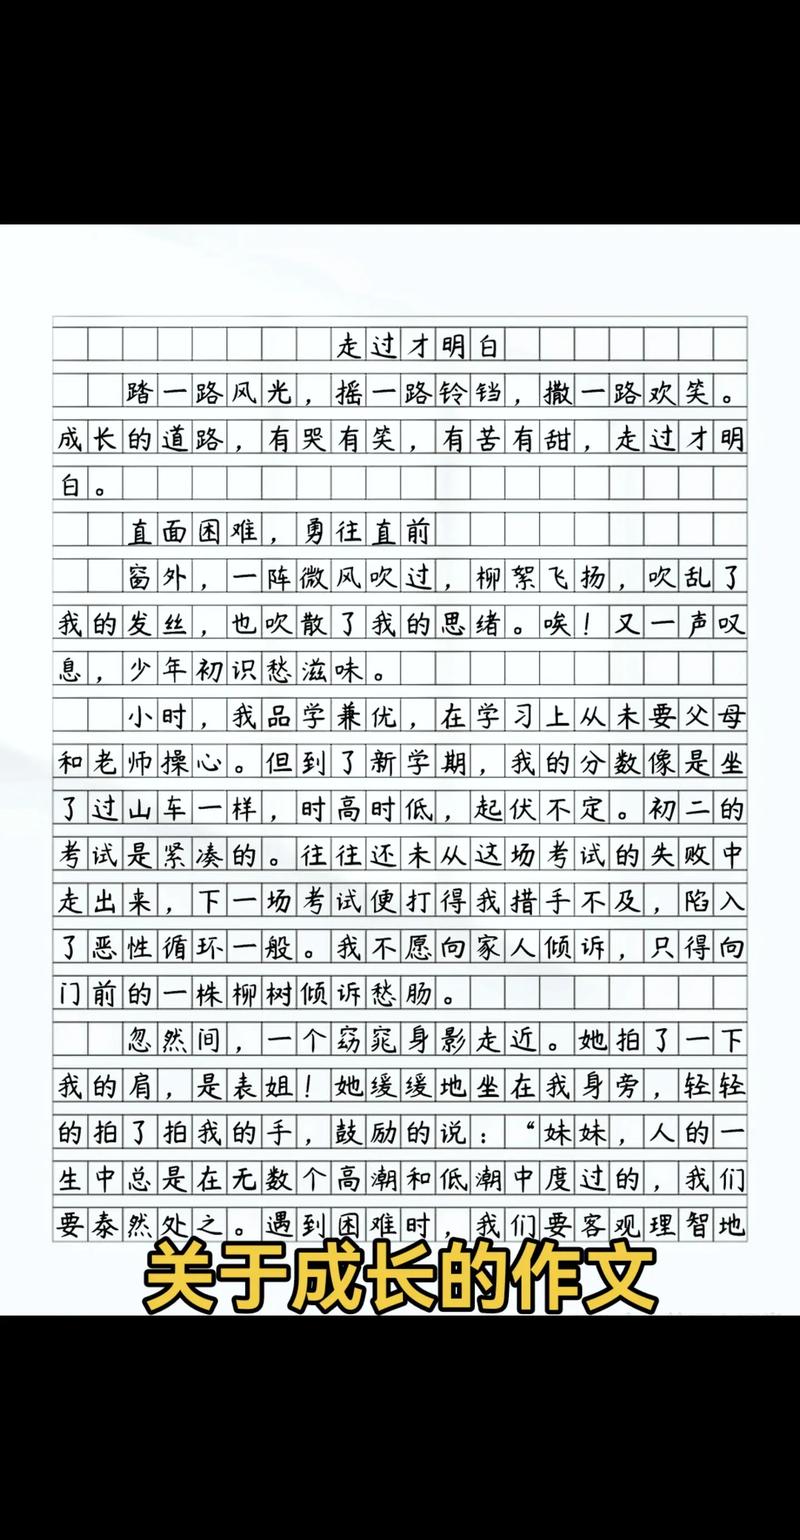 走过才明白
踏一路风光，摇一路铃铛，撒一路欢笑。
成长的道路，有哭有笑，有苦有甜，走过才明
白。
直面困难，勇往直前
窗外，一阵微风吹过，柳絮飞扬，吹乱了
我的发丝，也吹散了我的思绪。唉！又一声叹
息，少年初识愁滋味。
小时，我品学兼优，在学习上从未要父母
和老师操心。但到了新学期，我的分数像是坐
了过山车一样，时高时低，起伏不定。初二的
考试是紧凑的。往往还未从这场考试的失败中
走出来，下一场考试便打得我措手不及，陷入
了恶性循环一般。我不愿向家人倾诉，只得向
门前的一株柳树倾诉愁肠。
忽然间，一个窈窕身影走近。她拍了一下
我的肩，是表姐！她缓缓地坐在我身旁，轻轻
的拍了拍我的手，鼓励的说：“妹妹，人的一
生中总是在无数个高潮和低潮中度过的，我们
要泰然处之。遇到困难时，我们要客观理智地
关于成长的作文